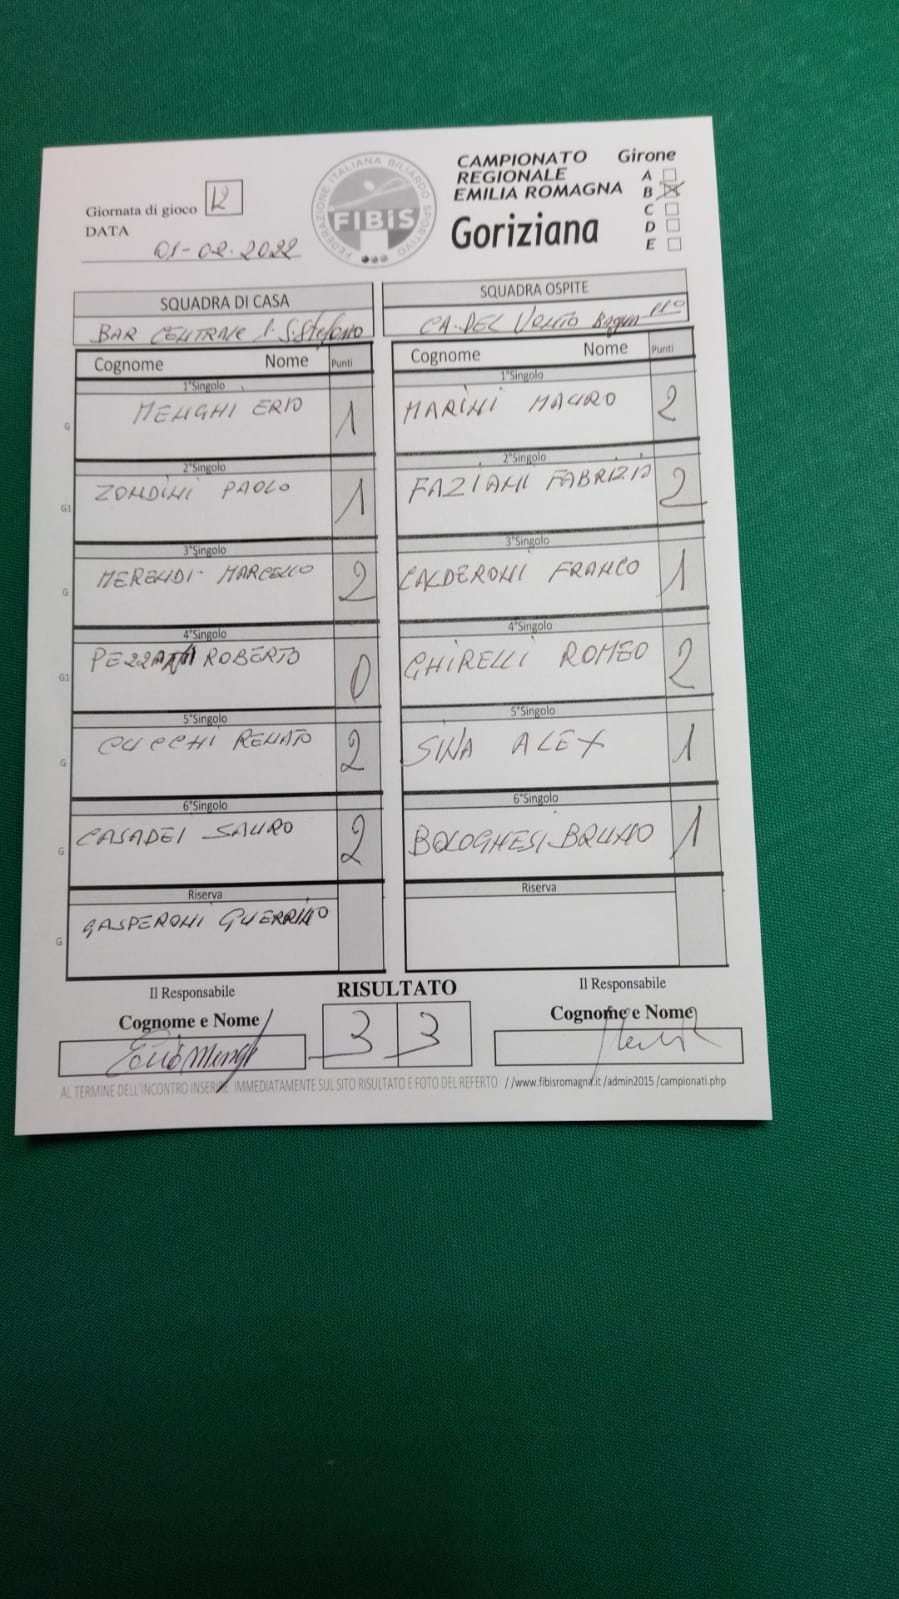 Giornata di gioco 12
DATA
01-02-2022
FEDERAZIONE ITALIANA BILIARDO SPORTIVO
FIBIS
CAMPIONATO
REGIONALE
EMILIA ROMAGNA
Goriziana
Girone
A
B
C
D
E
SQUADRA DI CASA
BAR CENTRALE S.Stefano
Cognome Nome Punti
1°Singolo
G MENGHI ERIO 1
2°Singolo
G1 ZONDINI PAOLO 1
3°Singolo
G MERENDI MARCELLO 2
4°Singolo
G1 ROBERTO 0
5°Singolo
G CUCCHI RENATO 2
6°Singolo
G CASADEI SAURO 2
Riserva
G GASPERONI GUERRINO
SQUADRA OSPITE
CA.DEL VENTO
Cognome Nome Punti
1°Singolo
MARINI MAURO 2
2°Singolo
FAZIANI FABRIZIO 2
3°Singolo
CALDERONI FRANCO 1
4°Singolo
GHIRELLI ROMEO 2
5°Singolo
SINA ALEX 1
6°Singolo
BOLOGNESI BRUNO 1
Riserva
Il Responsabile
Cognome e Nome
Erio Menghi
RISULTATO
3 3
Il Responsabile
Cognome e Nome
AL TERMINE DELL'INCONTRO INSERIRE IMMEDIATAMENTE SUL SITO RISULTATO E FOTO DEL REFERTO //www.fibisromagna.it /admin2015 /campionati.php